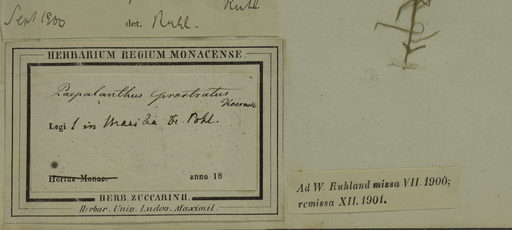 Ruhl
Sept 1900 det. Ruhl.
HERBARIUM REGIUM MONACENSE.
Paepalanthus prostratus
Koernicke
Legi in Brasilia Dr. Pohl.
Hortus Monac. anno 18
HERB. ZUCCARINII.
Herbar. Univ. Ludov. Maximil.
Ad W. Ruhland missa VII. 1900;
remissa XII. 1901.